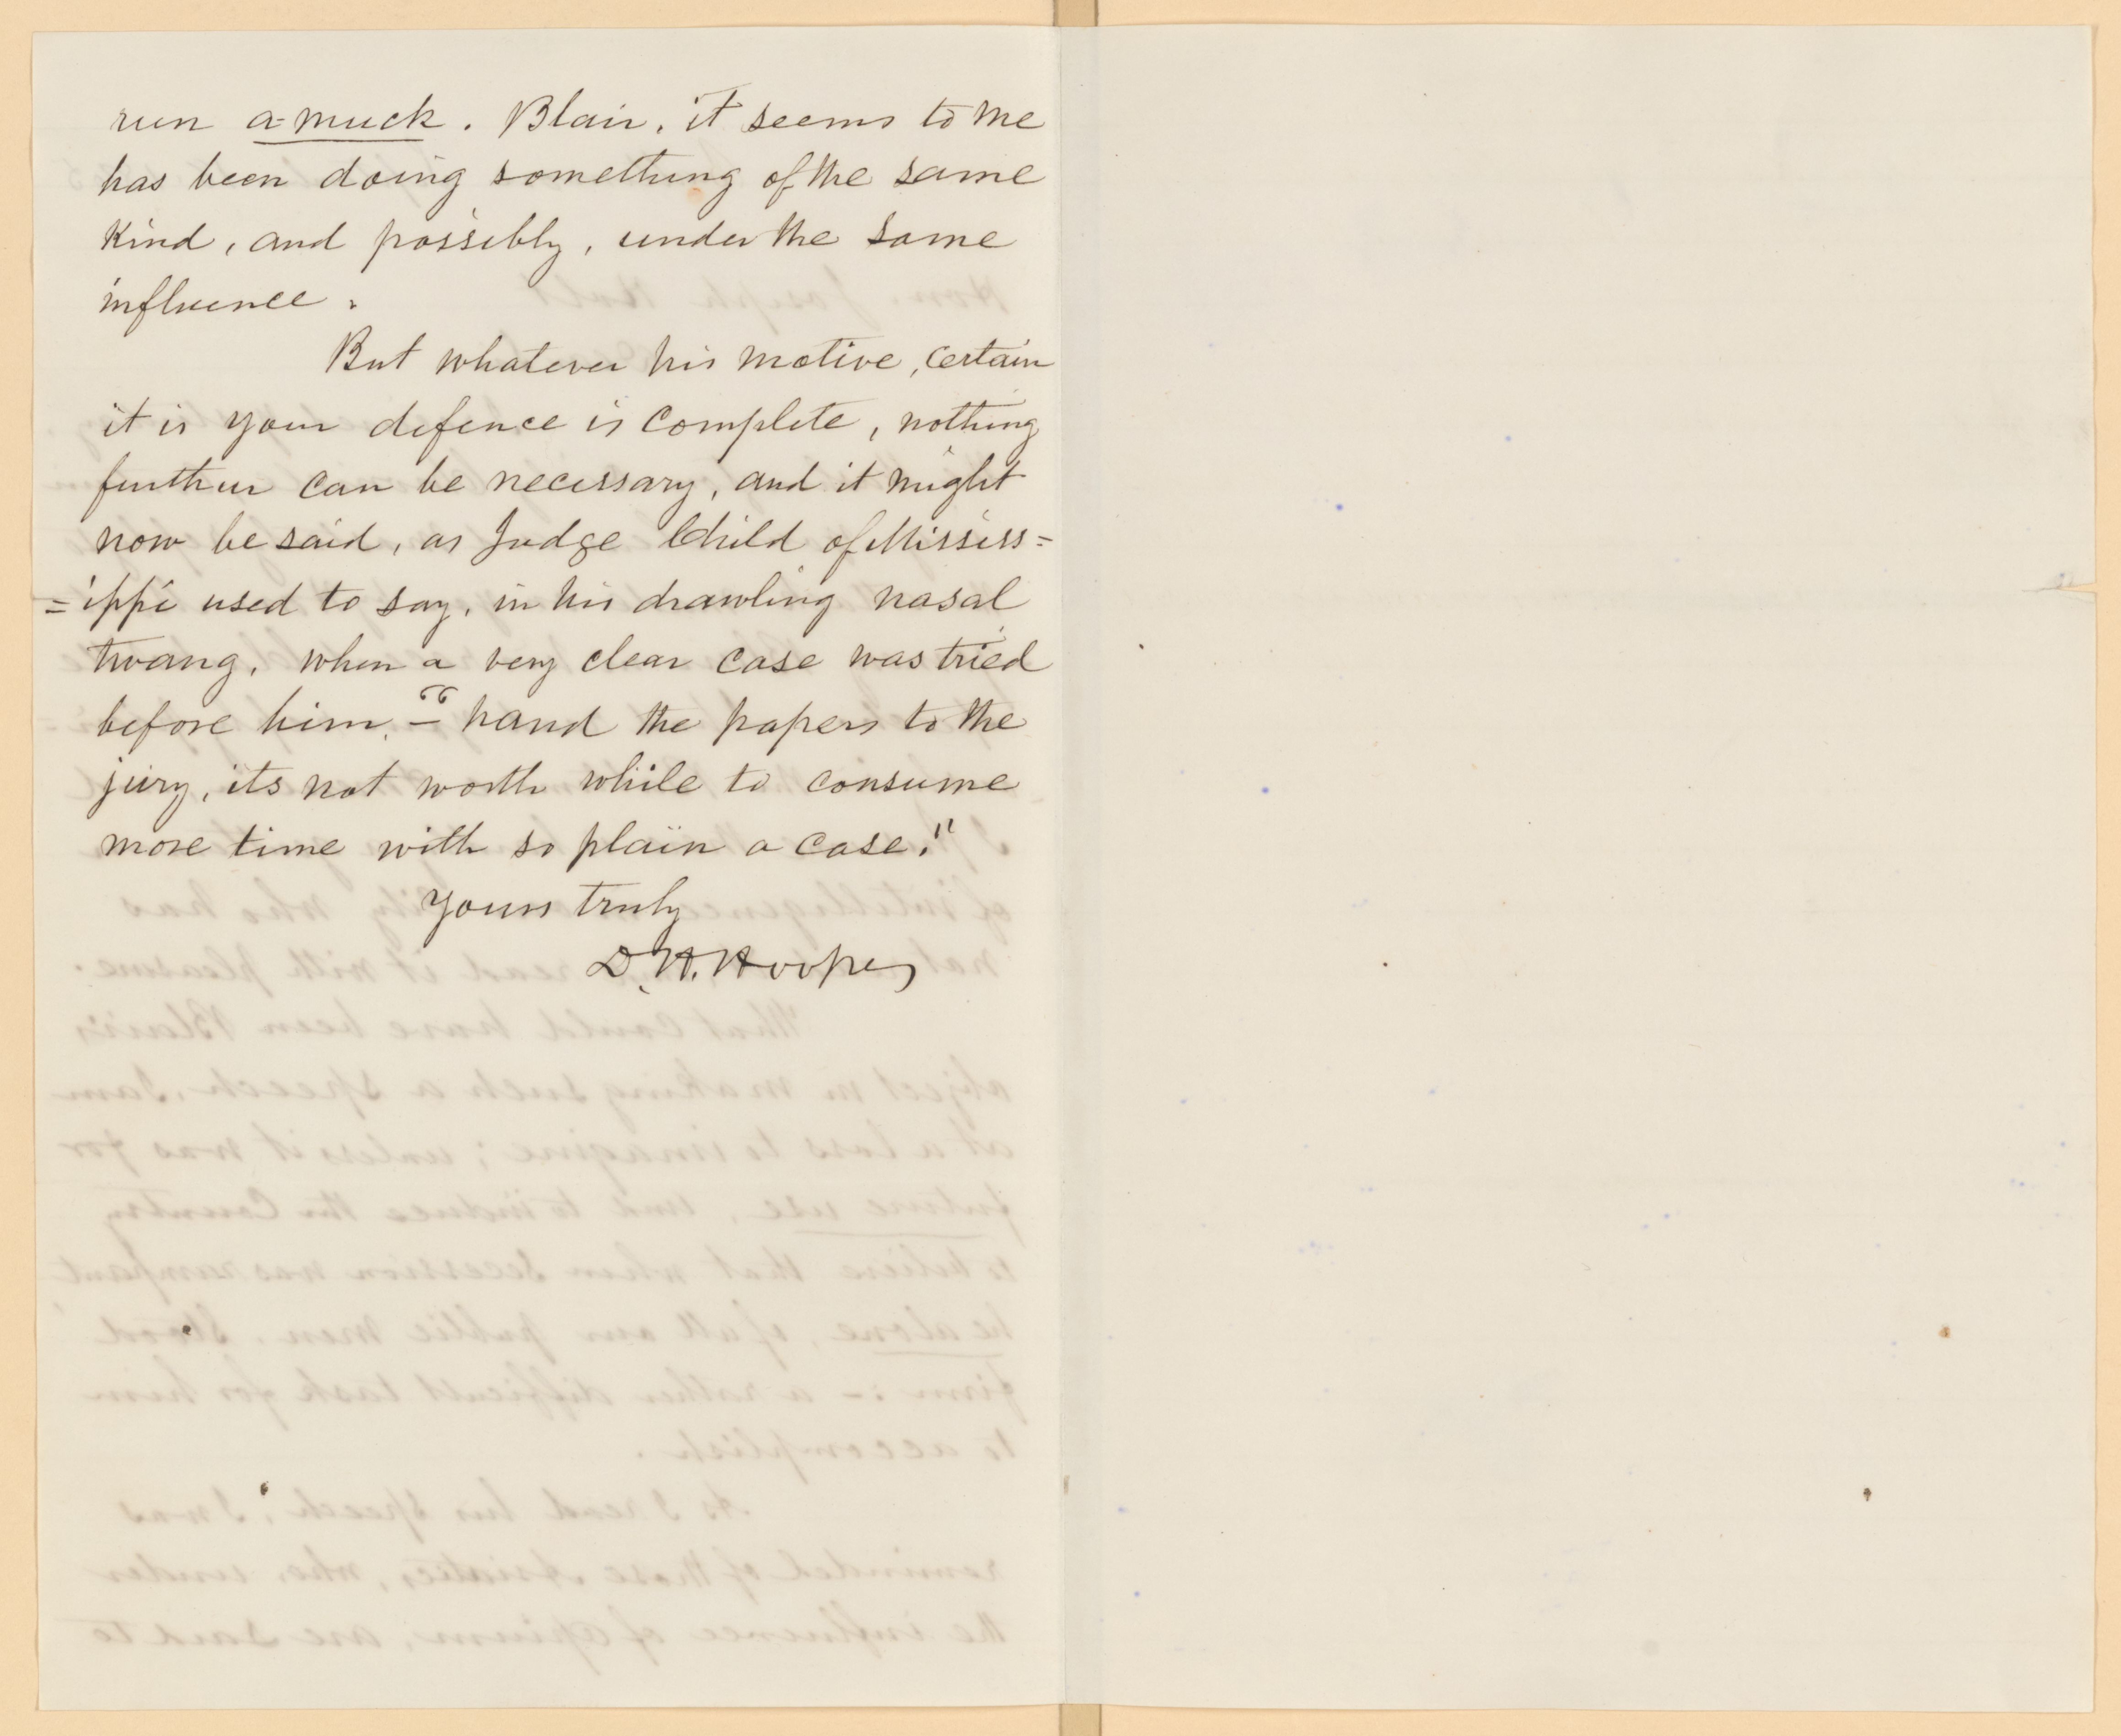 run a-muck. Blair, it seems to me
has been doing something of the same
kind, and possibly, under the same
influence.
But whatever his motive, certain
it is your defence is complete, nothing
further can be necessary, and it might
now be said, as Judge Child of Mississ=
=ippi used to say, in his drawling nasal
twang, when a very clear case was tried
before him, – "hand the papers to the
jury, its not worth while to consume
more time with so plain a case."
Yours truly
D. H. Hoopes